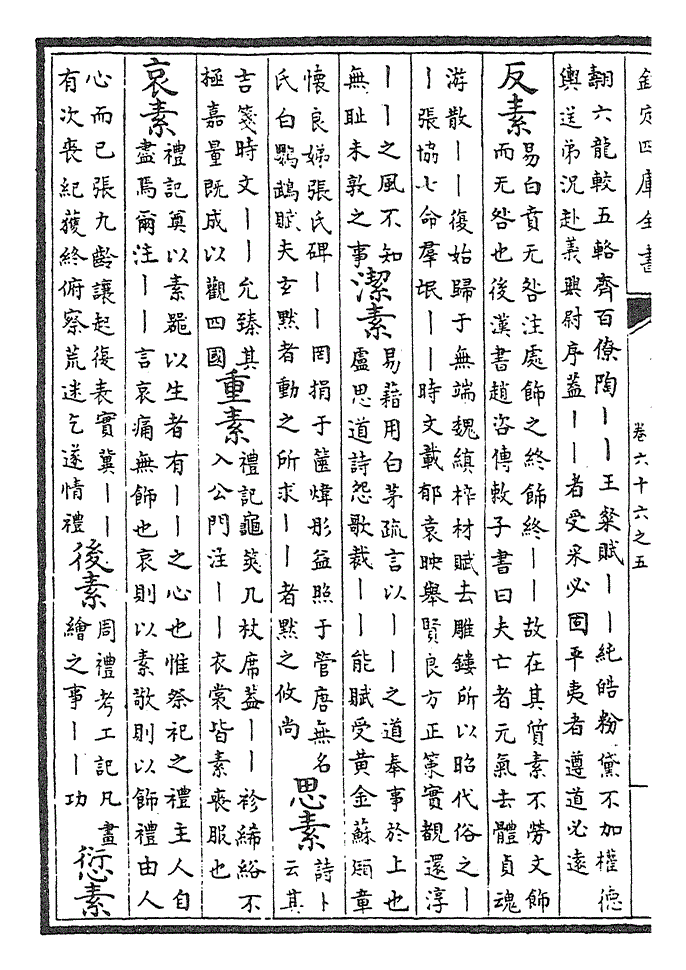 欽定四庫全書
卷六十六之五
六龍較五輅齊百僚陶丨丨王粲賦丨丨純皓粉黛不加權德
輿送弟況赴義興尉序蓋丨丨者受采必固平夷者遵道必遠
反素
易白賁无咎注處飾之終飾終丨丨故在其質素不勞文飾
而无咎也後漢書趙咨傳敕子書曰夫亡者元氣去體貞魂
游散丨丨復始歸于無端魏縝柞材賦去雕鏤所以昭代俗之丨
丨張協七命羣氓丨丨時文載郁袁映舉賢良方正策實覩還淳
丨丨之風不知
無耻未敦之事
潔素
易藉用白茅疏言以丨丨之道奉事於上也
盧思道詩怨歌裁丨丨能賦受黃金蘇頲章
懷良娣張氏碑丨丨罔捐于篋煒彤益照于管唐無名
氏白鸚鵡賦夫玄默者動之所求丨丨者默之攸尚
思素
詩卜
云其
吉箋時文丨丨允臻其
極嘉量既成以觀四國
重素
禮記龜筴几杖席蓋丨丨袗絺綌不
入公門注丨丨衣裳皆素喪服也
哀素
禮記奠以素器以生者有丨丨之心也惟祭祀之禮主人自
盡焉爾注丨丨言哀痛無飾也哀則以素敬則以飾禮由人
心而已張九齡讓起復表實冀丨丨
有次喪紀獲終俯察荒迷乞遂情禮
後素
周禮考工記凡畫
繪之事丨丨功
愆素